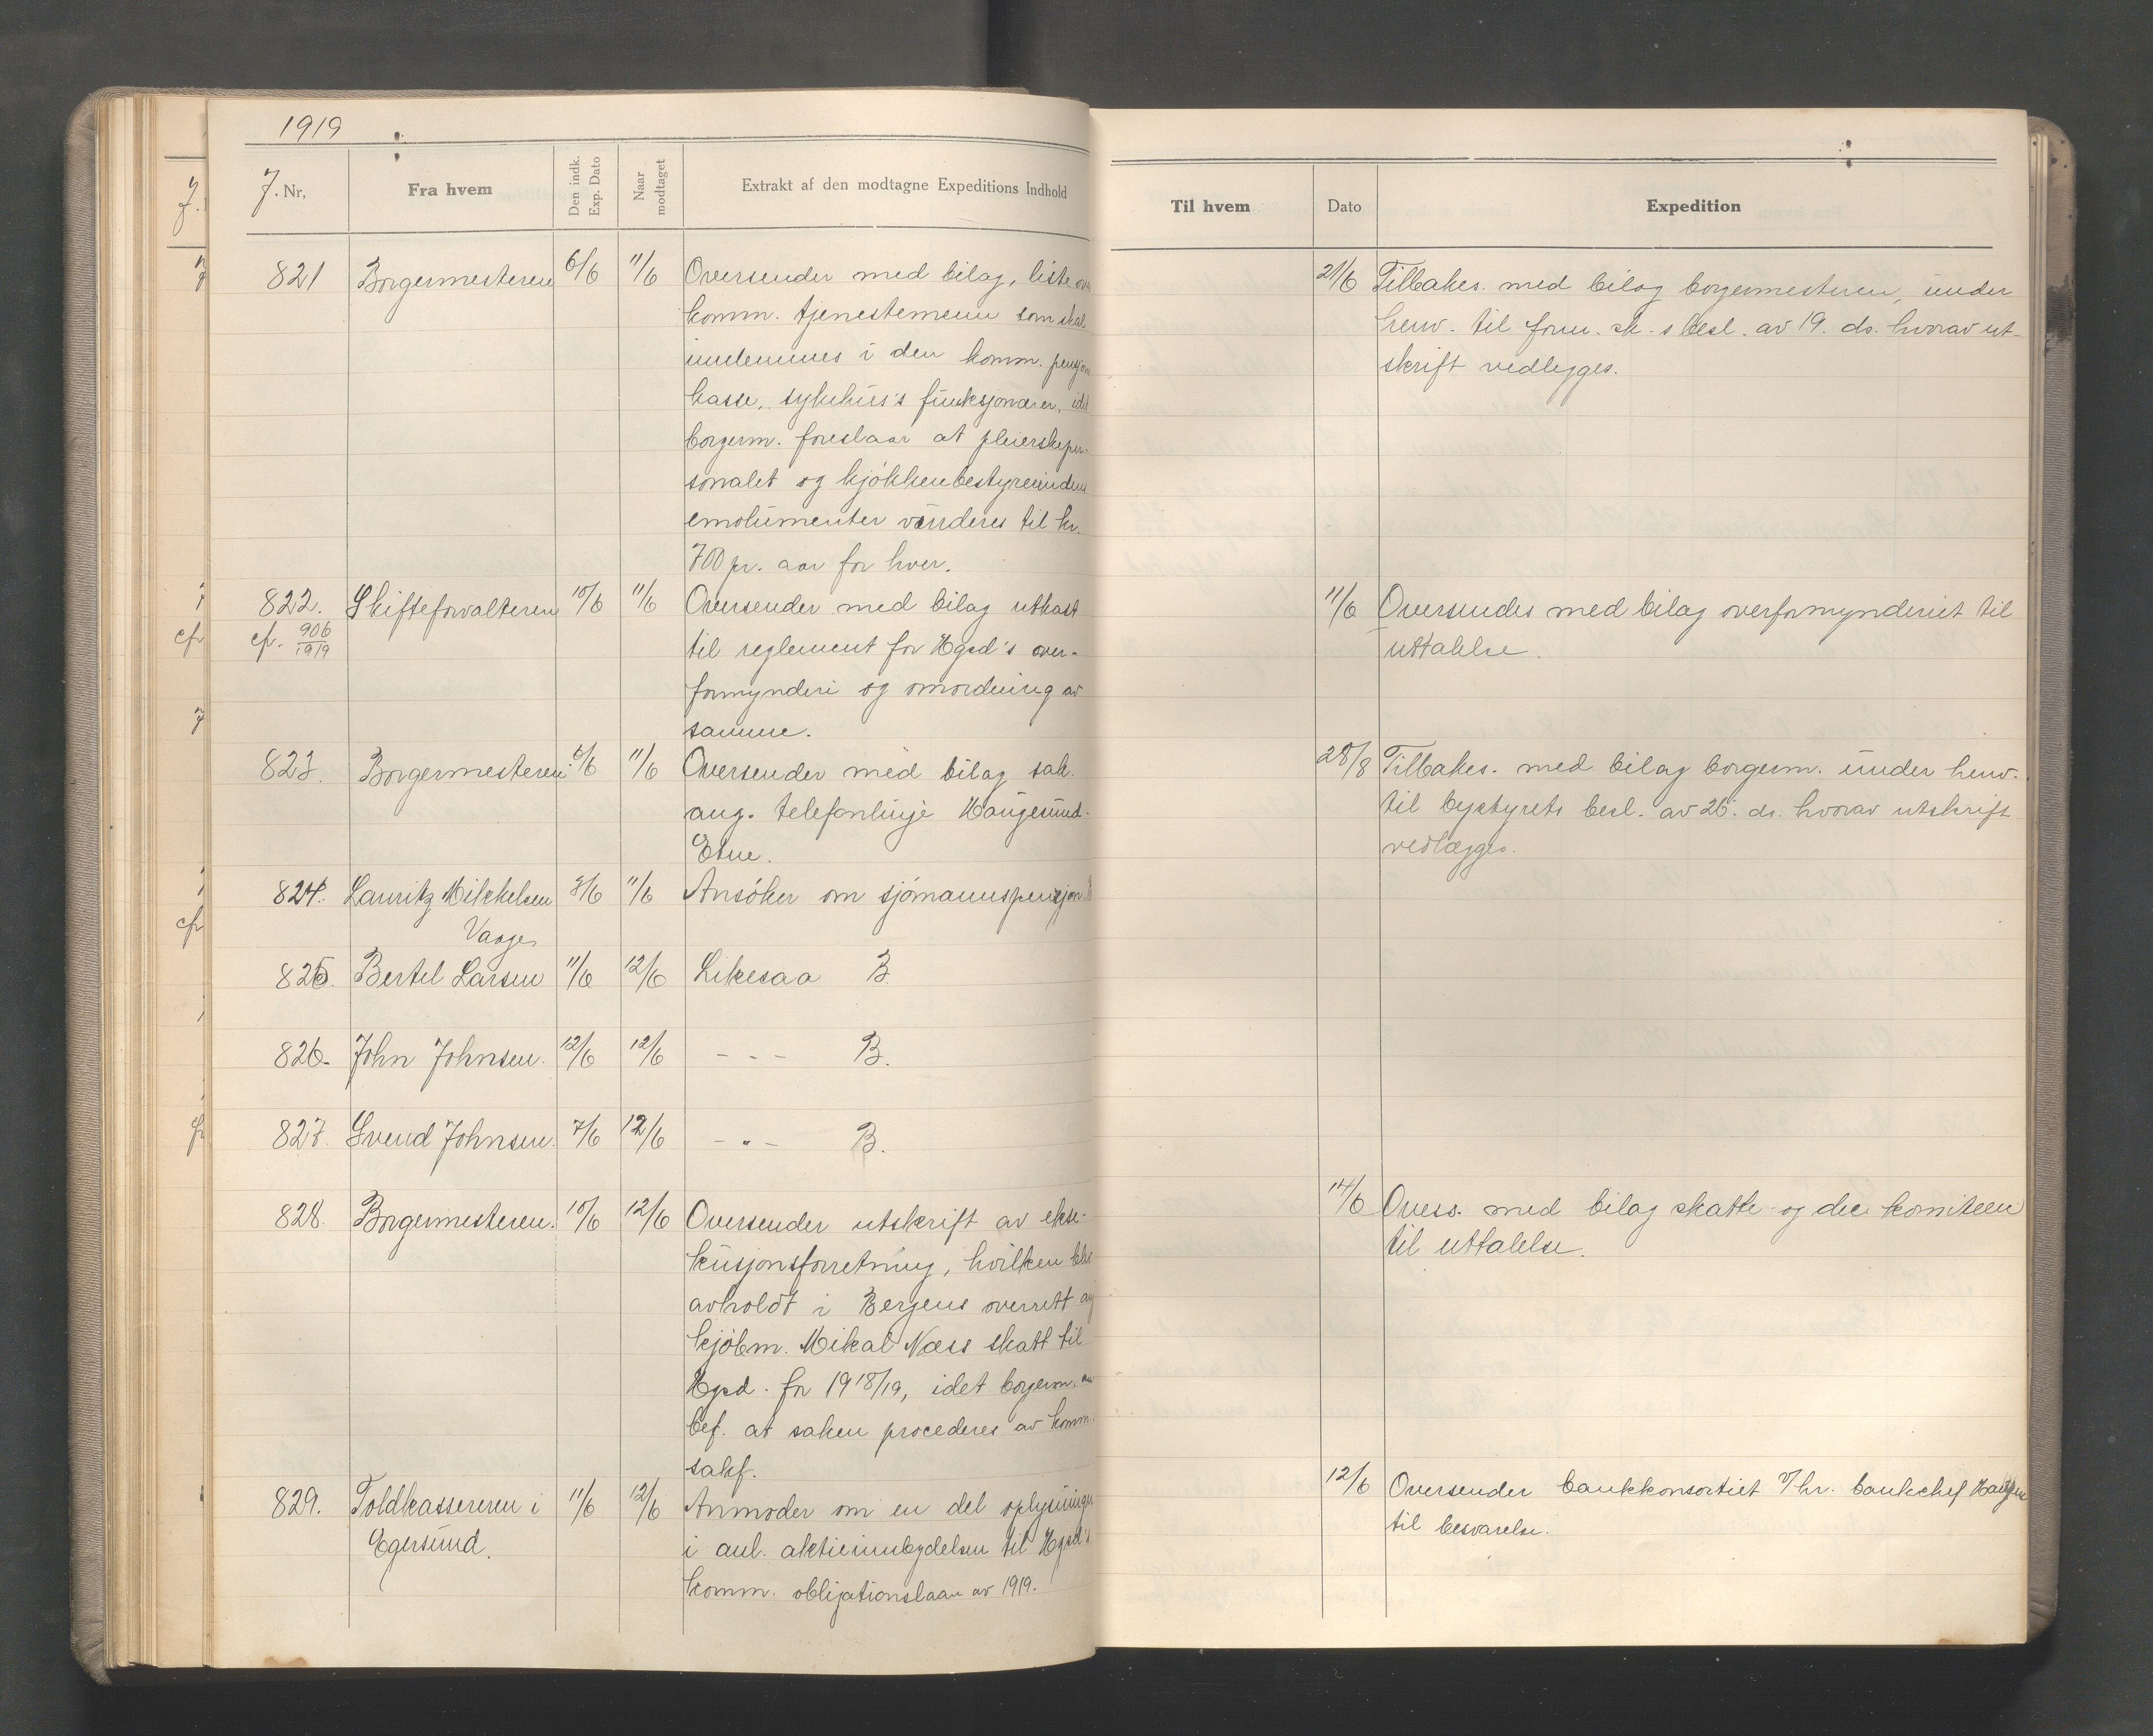 1919
J. Nr.
Fra hvem
Den indk. Exp. Dato
Naar modtaget
Extrakt af den modtagne Expeditions Indhold
Til hvem
Dato
Expedition
821 Borgermesteren 6/6 11/6 Oversender med bilag, liste over
komm. tjenestemenn som skal
innlemmes i den komm. pensjons
kasse, sykehus's funksjonærer, idet
borgerm. foreslaar at pleierskeper-
sonalet og kjökkenbestyrerindens
emolumenter vurderes til kr.
700 pr. aar for hver.
21/6 Tilbakes. med bilag borgermesteren, under
henv. til form.sk.s besl. av 19. ds. hvorav ut-
skrift vedlegges.
822. Skifteforvalteren 10/6 11/6 Oversender med bilag utkast
cf. 906/1919 til reglement for Hgsd's over-
formynderi og omordning av
samme.
11/6 Oversendes med bilag overformynderiet til
uttalelse.
823. Borgermesteren 6/6 11/6 Oversender med bilag sak
ang. telefonlinje Haugesund-
Etne.
28/8 Tilbakes. med bilag borgerm. under henv.
til bystyrets besl. av 26. ds. hvorav utskrift
vedlægges.
824. Lauritz Mikkelsen 8/6 11/6 Ansöker om sjömannspensjon. B
Vaage
825. Bertel Larsen 11/6 12/6 Likesaa B.
826. John Johnsen. 12/6 12/6 - - - B.
827. Svend Johnsen. 7/6 12/6 - " - B.
828. Borgermesteren. 10/6 12/6 Oversender utskrift av ekse-
kusjonsforretning, hvilken blev
avholdt i Bergens overrett ang
kjöbm. Mikal Næss skatt til
Hgsd. for 1918/19, idet borgerm. an
bef. at saken procederes av komm.
sakf.
14/6 Overs. med bilag skatte- og dec. komiteen
til uttalelse.
829. Toldkassereren i 11/6 12/6 Anmoder om en del oplysninger
Egersund. i anl. aktieinnbydelsen til Hgsd's
komm. obligationslaan av 1919.
12/6 Oversender bankkonsortiet v/hr. bankchef
til besvarelse.